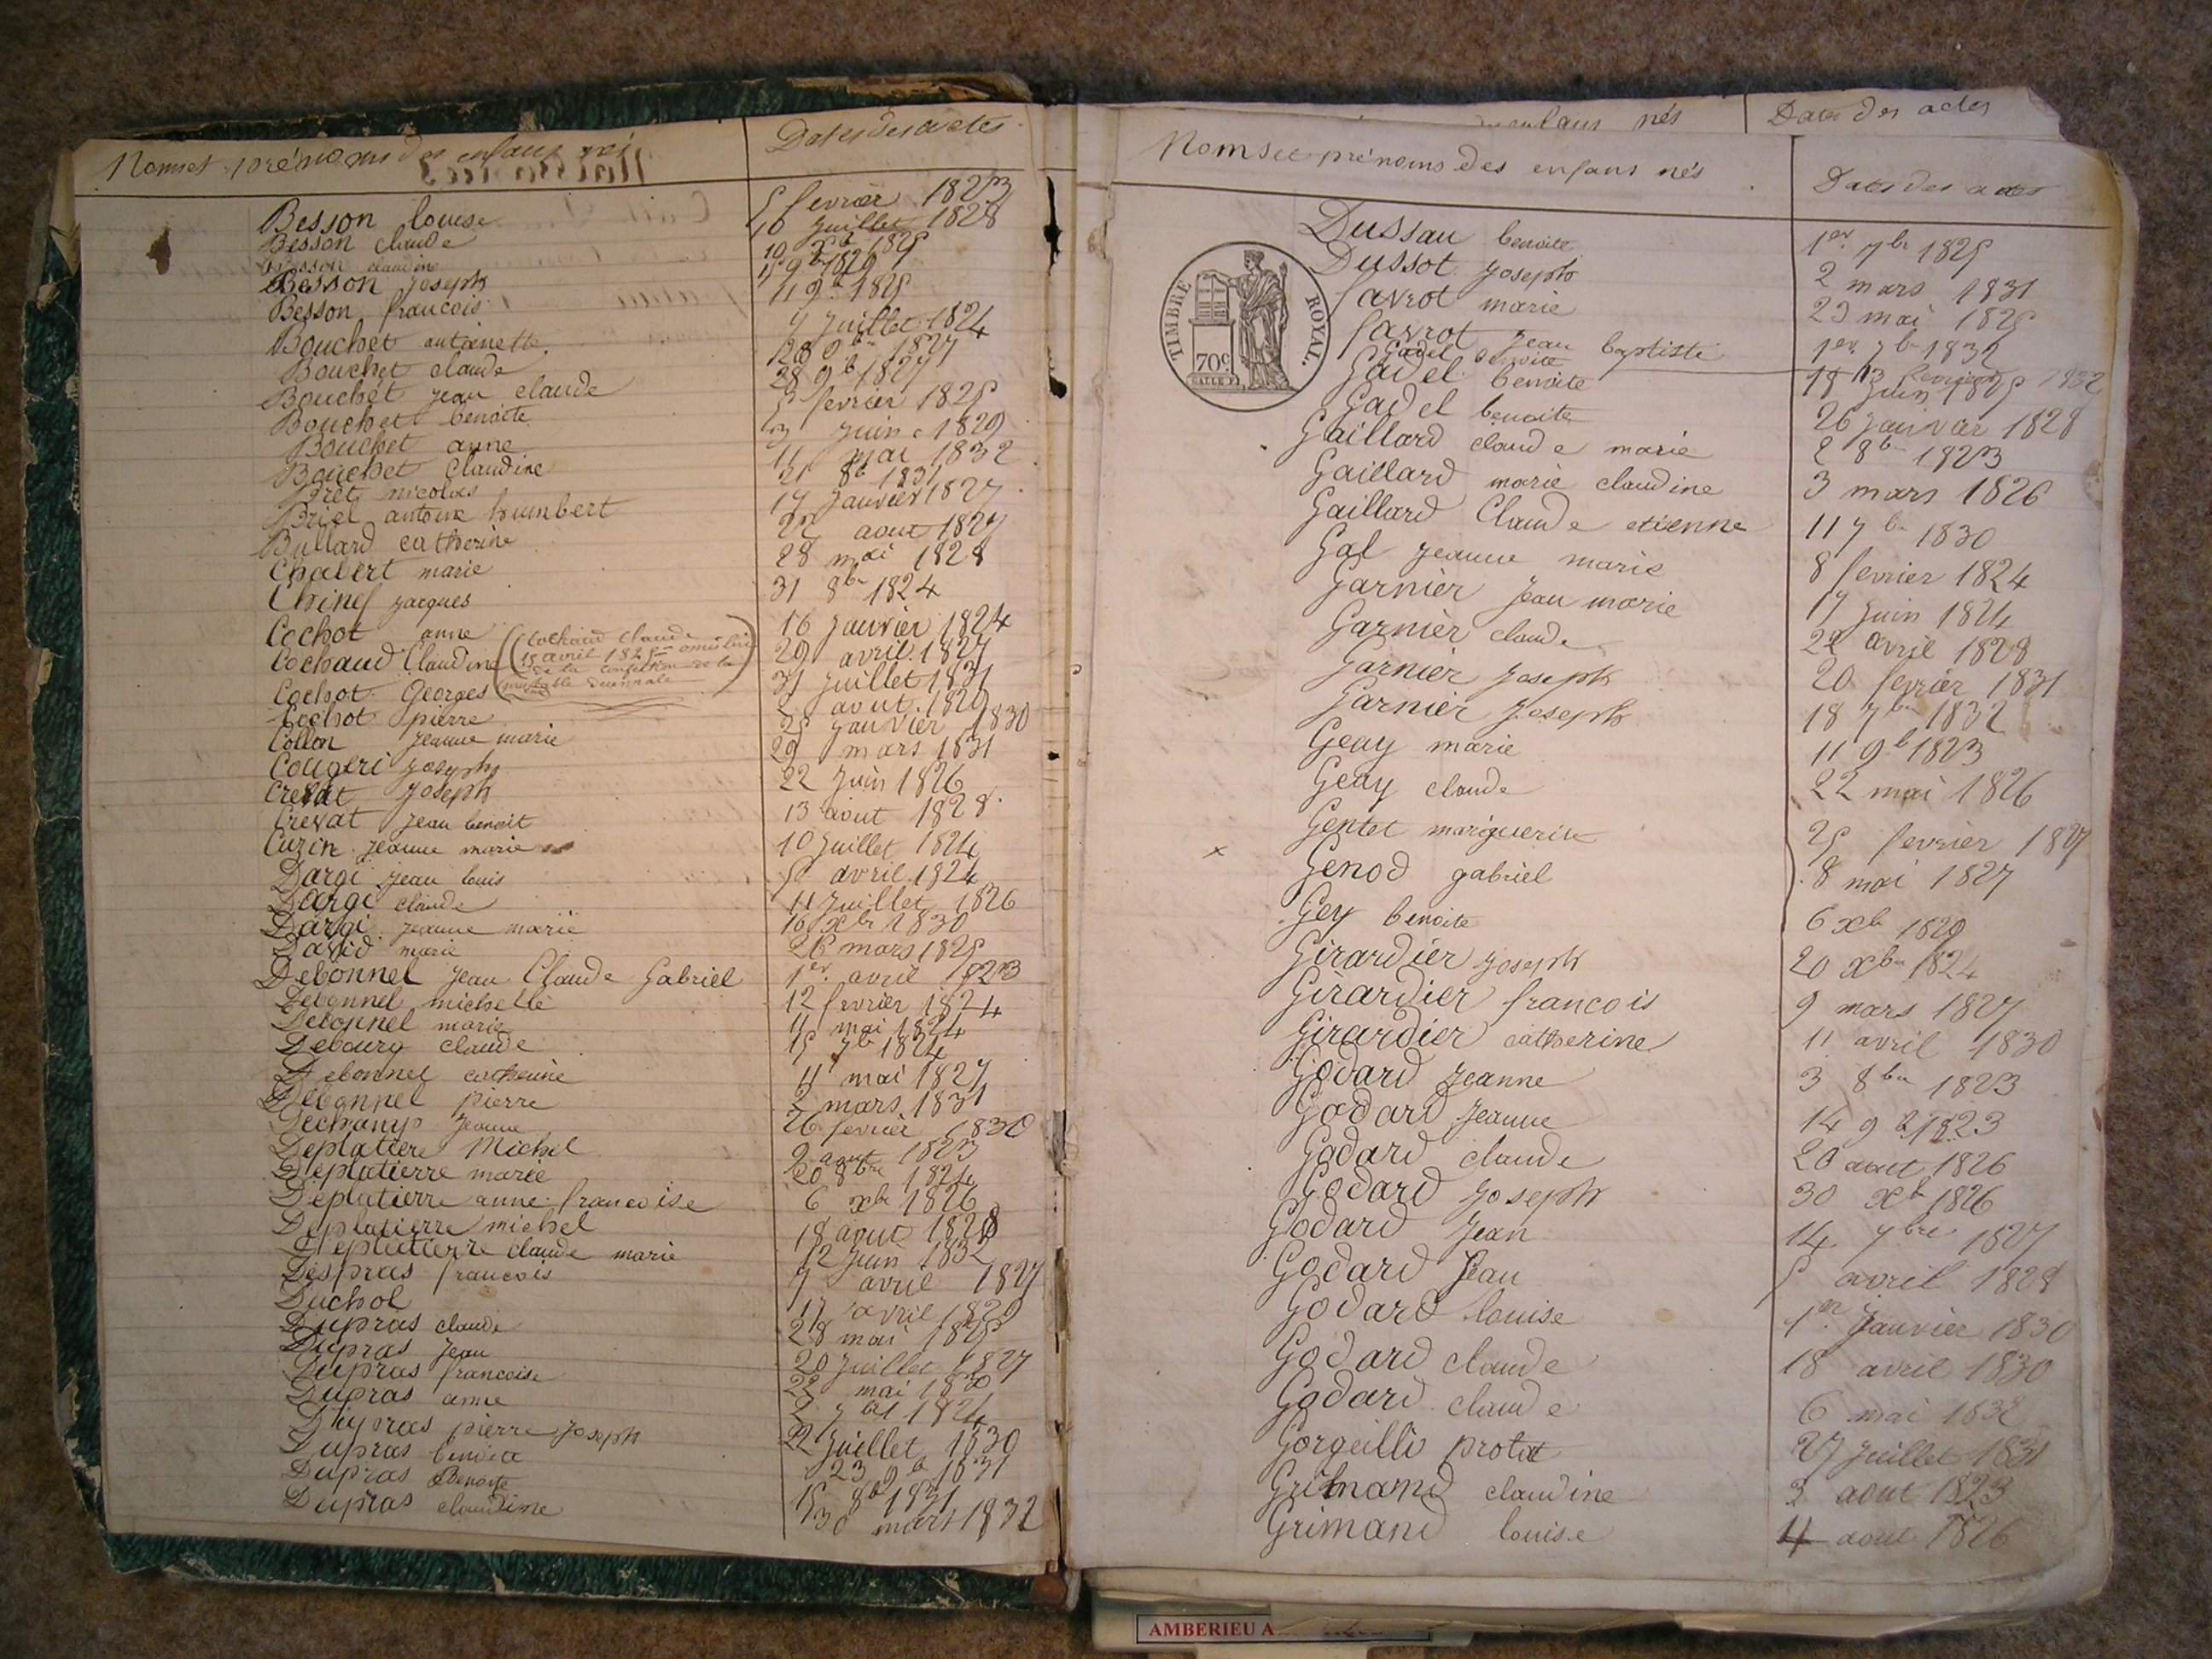 Noms et prénoms des enfans nés
Dates des actes
Besson louise 5 fevrier 1823
Besson claude 10 juillet 1828
Besson claudine 10 xb 1825
Besson joseph 9b 1826
Besson francois 11 9b 1825
Bouchet antoinette 4 juillet 1824
Bouchet claude 1827
Bouchet jean claude 28 9b 1827
Bouchet benoite 5 fevrier 1825
Bouchet anne 3 juin 1829
Bouchet Claudine 11 mai 1832
Bret nicolas 21 8b 1831
Briel antoine humbert 17 janvier 1827
Bullard catherine 22 aout 1827
Chabert marie 28 mai 1828
Chinel jacques 31 8bre 1824
Cochot anne 16 janvier 1824
Cochaud Claudine 29 avril 1827
(Cochaud Claude
15 avril 1825 omis lors
de la confection de la
table décennale
Cochot Georges 31 juillet 1831
Cochot pierre aout 1829
Collon jeanne marie 25 janvier 1830
Cougeri joseph 29 mars 1831
Crevat joseph 22 juin 1826
Crevat jean benoit 13 aout 1828
Cuzin jeanne marie 10 juillet 1824
Dargi jean louis avril 1824
Dargi claude 11 juillet 1826
Dargi jeanne marie 16 xbr 1830
David marie 26 mars 1825
Debonnel jean Claude Gabriel 1er avril 1823
Debonnel michelle 12 fevrier 1824
Debonnel marie mai 1824
Debourg claude 15 7b 1824
Debonnel catherine 4 mai 1827
Debonnel pierre 2 mars 1831
Dechamp jeanne 26 fevrier 1830
Deplatiere Michel 2 aout 1823
Deplatierre marie 20 8bre 1824
Deplatierre anne francoise 6 xbr 1826
Deplatierre michel 18 aout 1828
Deplatierre claude marie 12 juin 1832
Despras francois 7 avril 1827
Duchol 17 avril 1829
Dupras claude 28 mai 1825
Dupras jean 20 juillet 1827
Dupras francoise 22 mai
Dupras anne 2 1824
Dupras pierre joseph 22 juillet 1830
Dupras benoite 23 9b 1831
Dupras Benoite 15 8b 1831
Dupras claudine 30 mars 1832
enfans nés
Dates des actes
Noms et prénoms des enfans nés
Dates des actes
TIMBRE ROYAL.
70c
Dussau benoite 1er 7br 1825
Dussot joseph 2 mars 1831
favrot marie 23 mai 1825
favrot jean baptiste 1er 7b 1832
Gadel benoite 13 1832
Gadel benoite 18 juin 1825
Gadel benoite 26 janvier 1828
Gaillard claude marie 2 8b 1823
Gaillard marie claudine 3 mars 1826
Gaillard Claude etienne 11 7b 1830
Gal jeanne marie 8 fevrier 1824
Garnier jean marie 17 juin 1824
Garnier claude 22 avril 1828
Garnier joseph 20 fevrier 1831
Garnier joseph 18 7b 1832
Geay marie 11 9b 1823
Geay claude 22 mai 1826
Gentet marguerite 25 fevrier 1827
x Genod gabriel 8 mai 1827
Gey benoite 6 xb 1829
Girardier joseph 20 xbr 1824
Girardier francois 9 mars 1827
Girardier catherine 11 avril 1830
Godard jeanne 3 8bre 1823
Godard jeanne 14 9b 1823
Godard claude 20 aout 1826
Godard joseph 30 xb 1826
Godard jean 14 7bre 1827
Godard jean 5 avril 1828
Godard louise 1er janvier 1830
Godard claude 18 avril 1830
Godard claude 6 mai 1832
Gorgeilli protat 27 juillet 1831
Grimand claudine 3 aout 1823
Grimand louise 4 aout 1826
AMBERIEU A